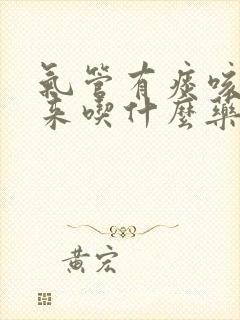 氣管有痰咳
来喫什麼藥
黄宏